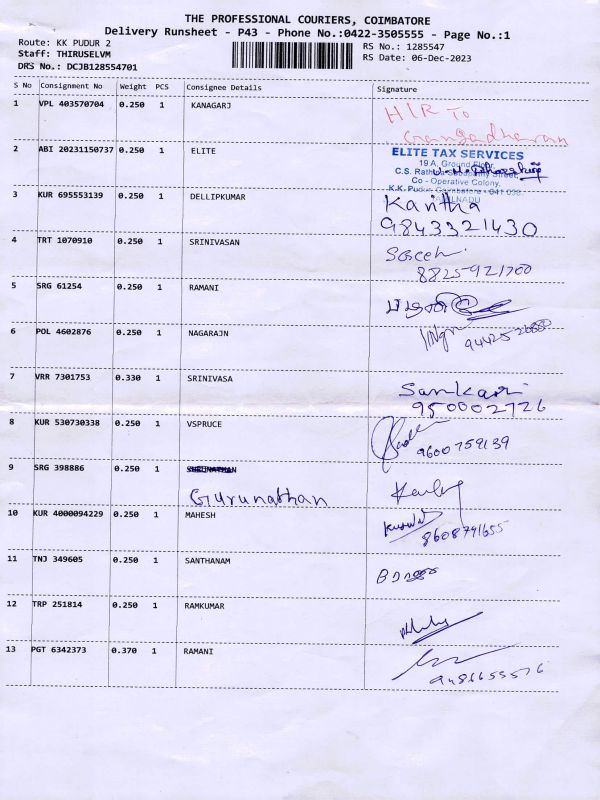 THE PROFESSIONAL COURIERS, COIMBATORE
Delivery Runsheet - P43 - Phone No.:0422-3505555 - Page No.:1
Route: KK PUDUR 2 RS No.: 1285547
Staff: THIRUSELVM RS Date: 06-Dec-2023
DRS No.: DCJB128554701
S No Consignment No Weight PCS Consignee Details Signature
1 VPL 403570704 0.250 1 KANAGARJ HIR To
Gangadharan
2 ABI 20231150737 0.250 1 ELITE ELITE TAX SERVICES
19 A, Ground Floor,
C.S. Street,
Co - Operative Colony,
K.K. Pudur, Coimbatore - 641 038
TAMILNADU
3 KUR 695553139 0.250 1 DELLIPKUMAR Kavitha
9843321430
4 TRT 1070910 0.250 1 SRINIVASAN
8825921700
5 SRG 61254 0.250 1 RAMANI
6 POL 4602876 0.250 1 NAGARAJN
7 VRR 7301753 0.330 1 SRINIVASA Sankari
950002726
8 KUR 530730338 0.250 1 VSPRUCE
9600759139
9 SRG 398886 0.250 1
Gurunathan
10 KUR 4000094229 0.250 1 MAHESH
8608791655
11 TNJ 349605 0.250 1 SANTHANAM
12 TRP 251814 0.250 1 RAMKUMAR
13 PGT 6342373 0.370 1 RAMANI
9486655576